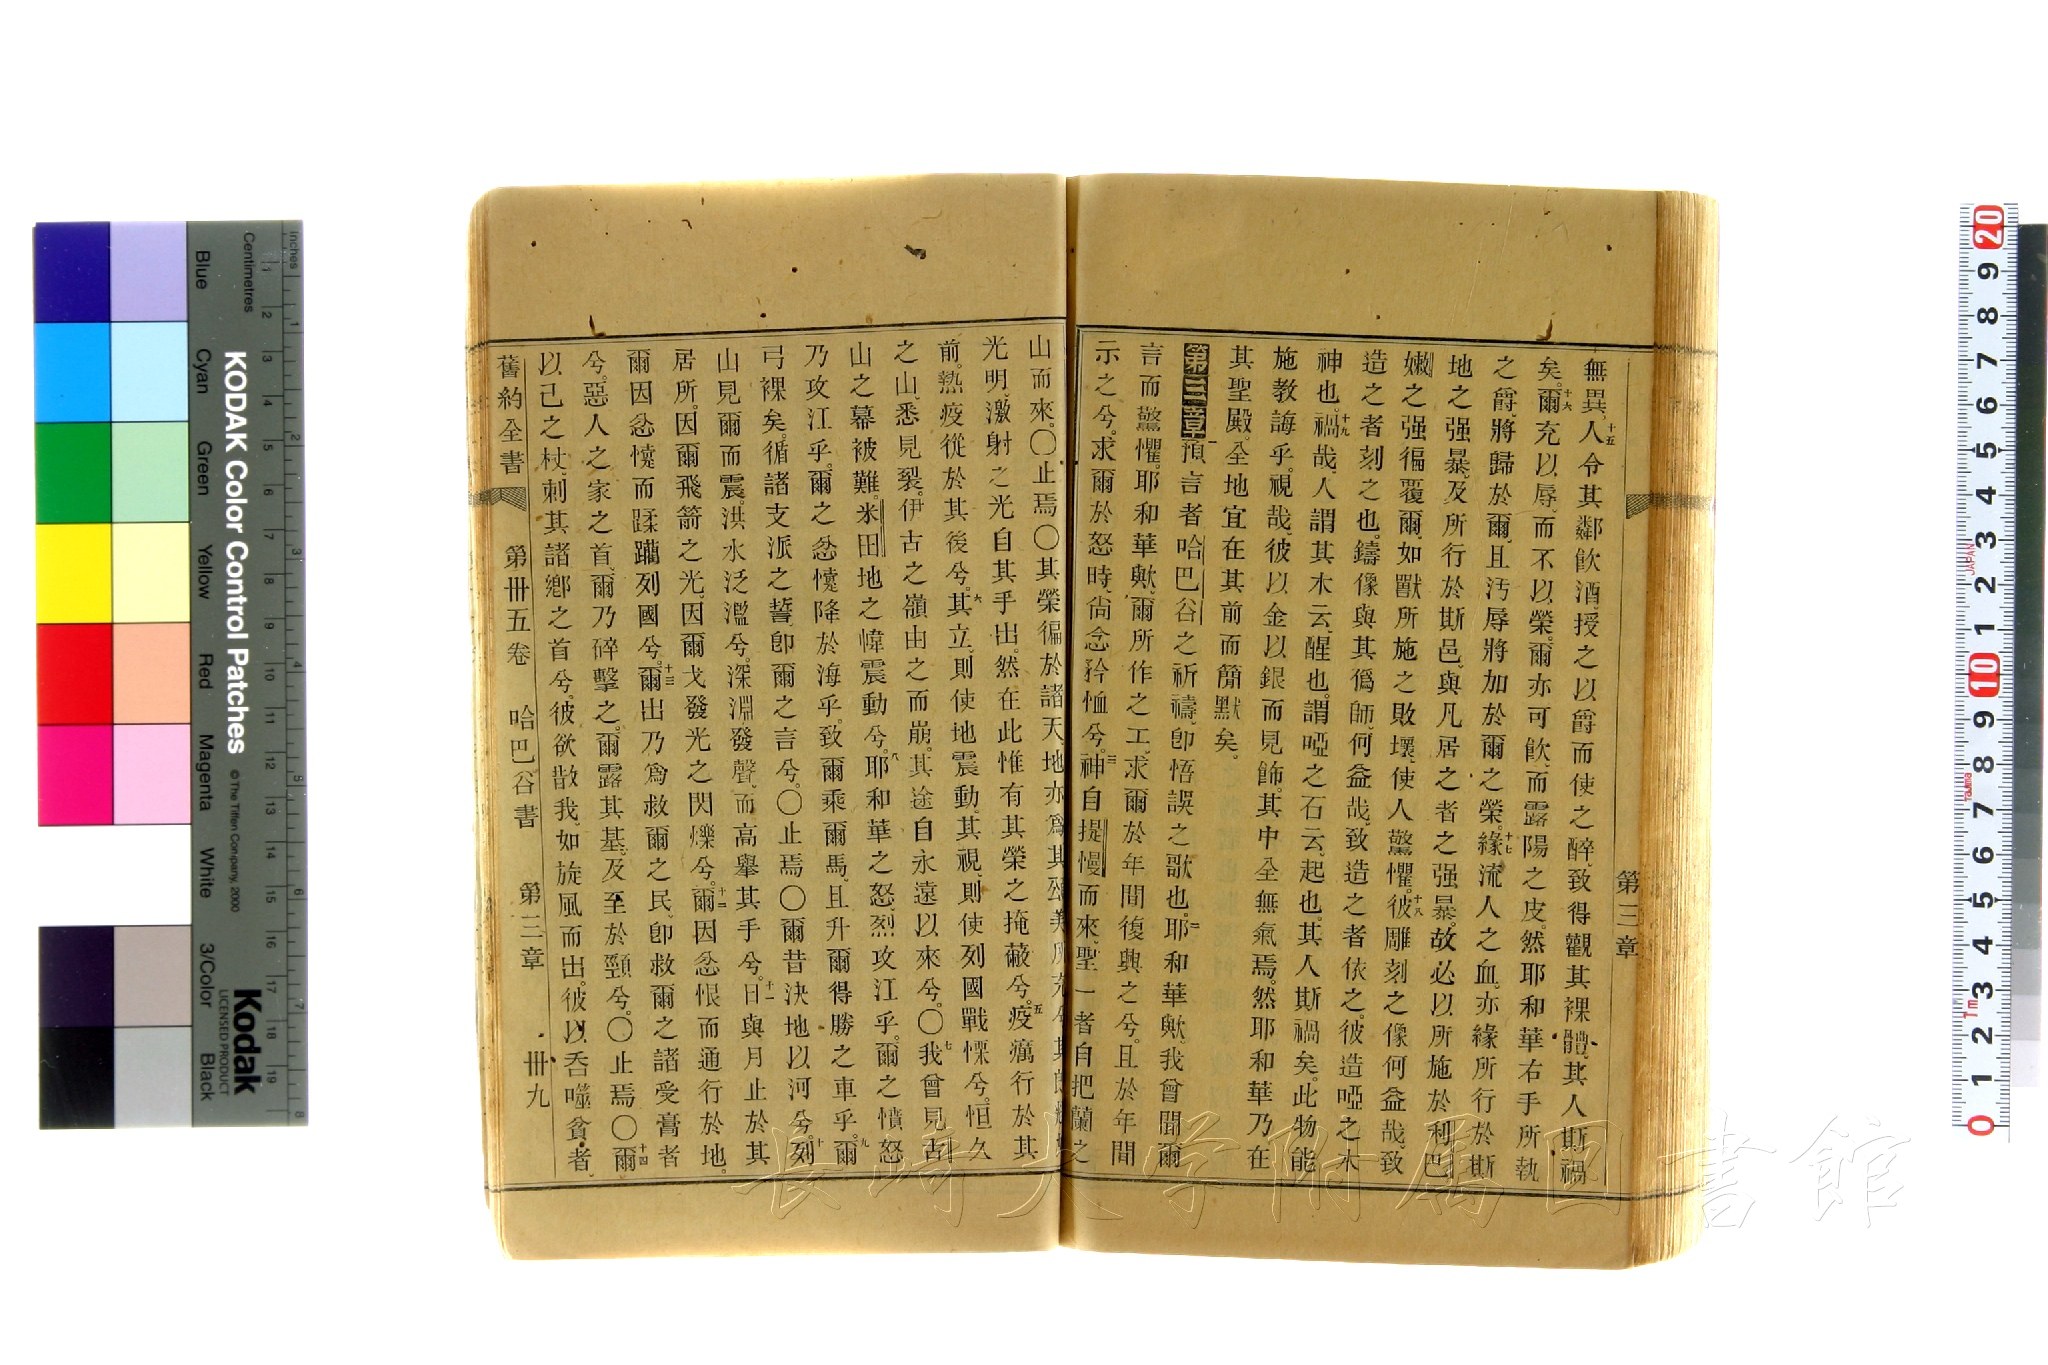 第三章
無異、十五人令其鄰飲酒、授之以爵而使之醉、致得觀其裸體、其人斯禍
矣。十六爾充以辱、而不以榮。爾亦可飲、而露陽之皮。然耶和華右手所執
之爵、將歸於爾、且汚辱將加於爾之榮。十七緣流人之血、亦緣所行於斯
地之强暴、及所行於斯邑、與凡居之者之强暴、故必以所施於利巴
嫩之强徧覆爾、如獸所施之敗壞、使人驚懼。十八彼雕刻之像何益哉、致
造之者刻之也。鑄像與其僞師、何益哉、致造之者依之。彼造啞之木
神也。十九禍哉、人謂其木云、醒也。謂啞之石云、起也。其人斯禍矣。此物能
施教誨乎。視哉、彼以金以銀而見飾。其中全無氣焉。然耶和華乃在
其聖殿。全地宜在其前而簡默矣。
第三章 一預言者哈巴谷之祈禱、卽悟誤之歌也。二耶和華歟、我曾聞爾
言而驚懼。耶和華歟、爾所作之工、求爾於年間復興之兮。且於年間
示之兮。求爾於怒時、尙念矜恤兮。三神自提慢而來、聖一者自把蘭之
山而來。〇止焉〇其榮徧於諸天、地亦爲其頌美所充兮。
光明、激射之光自其手出。然在此惟有其榮之掩蔽兮。五疫癘行於其
前。熱疫從於其後兮。六其立、則使地震動。其視、則使列國戰慄兮。恒久
之山、悉見裂。伊古之嶺由之而崩。其途自永遠以來兮。〇七我曾見古
山之幕被難。米田地之幃震動兮。八耶和華之怒烈攻江乎。爾之憤怒
乃攻江乎。爾之忿懥降於海乎。致爾乘爾馬、且升爾得勝之車乎。九爾
弓裸矣。循諸支派之誓、卽爾之言兮。〇止焉〇爾昔決地以河兮。十列
山見爾而震。洪水泛濫兮。深淵發聲、而高舉其手兮。十一日與月止於其
居所。因爾飛箭之光、因爾戈發光之閃爍兮。十二爾因忿恨而通行於地。
爾因忿懥而蹂躪列國兮。十三爾出乃爲救爾之民、卽救爾之諸受膏者
兮。惡人之家之首、爾乃碎擊之。爾露其基、及至於頸兮。〇止焉〇十四爾
以己之杖、刺其諸鄉之首兮。彼欲散我、如旋風而出。彼以吞噬貧者、
舊約全書 第卅五卷 哈巴谷書 第三章 卅九
KODAK Color Control Patches
©The Tiffen Company, 2000
Kodak
LICENSED PRODUCT
Inches
Centimetres
Blue
Cyan
Green
Yellow
Red
Magenta
White
3/Color
Black
長崎大学附属図書館